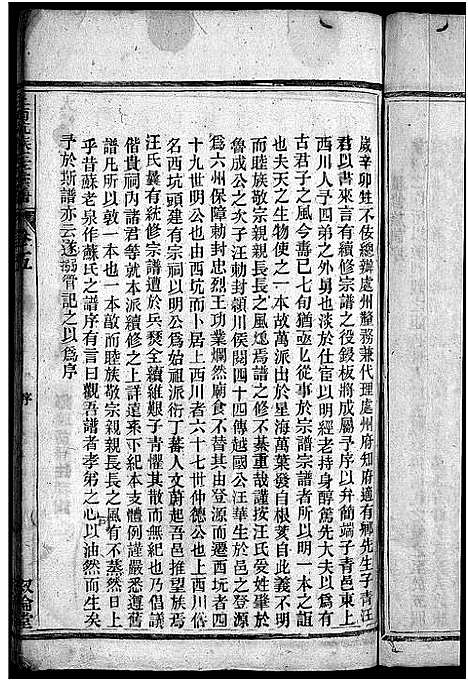 歲辛卯牲不佞總辦處州釐務兼代理處州府知府適有鄉先生子青汪
君以書來言有續修宗譜之役鋟板將成屬予序以弁簡端子青邑東上
西川人予四弟之外舅也淡於仕宦以明經老持身醇篤先大夫以爲有
古君子之風今壽已七旬猶亟亟從事於宗譜宗譜者所以明一本之誼
也夫天之生物使之一本故萬派出於星海萬葉發自根荄自此義不明
而睦族敬宗親親長長之風熄焉譜之修不綦重哉謹按汪氏爰姓肇於
魯成公之次子汪勅封潁川侯閱四十四傳越國公汪華生於邑之登源
爲六州保障勅封忠烈王功業爛然廟食不替其由登源而遷西坑者四
十九世明公也由西坑而卜居上西川者六十七世仲德公也上西川俗
名西坑頭建有宗祠以明公爲始祖派衍丁蕃人文蔚起吾邑推望族焉
汪氏曩有統修宗譜遭於兵燹全續維艱子青懼其散而無紀也乃倡議
偕貴祠內諸君等就本派續修之上詳遠來下紀本支體例謹嚴悉遵舊
譜凡所以敦一本也一本敵而睦族敬宗親親長長之風有不蒸然日上
乎昔蘇老泉作蘇氏之譜序有言曰觀吾譜者孝弟之心可以油然而生矣
予於斯譜亦云遂搦管記之以爲序
序
敘倫堂